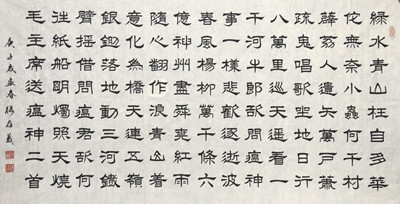 綠水青山枉自多華
佗無奈小蟲何千村
薜荔人遺矢萬戶蕭
疏鬼唱歌坐地日行
八萬里巡天遙看一
千河牛郎欲問瘟神
事一樣悲歡逐逝波
春風楊柳萬千條六
億神州盡舜堯紅雨
隨心翻作浪青山着
意化為橋天連五嶺
銀鋤落地動三河鐵
臂搖借問瘟君欲何
往紙船明燭照天燒
毛主席送瘟神二首
庚子歲孟春